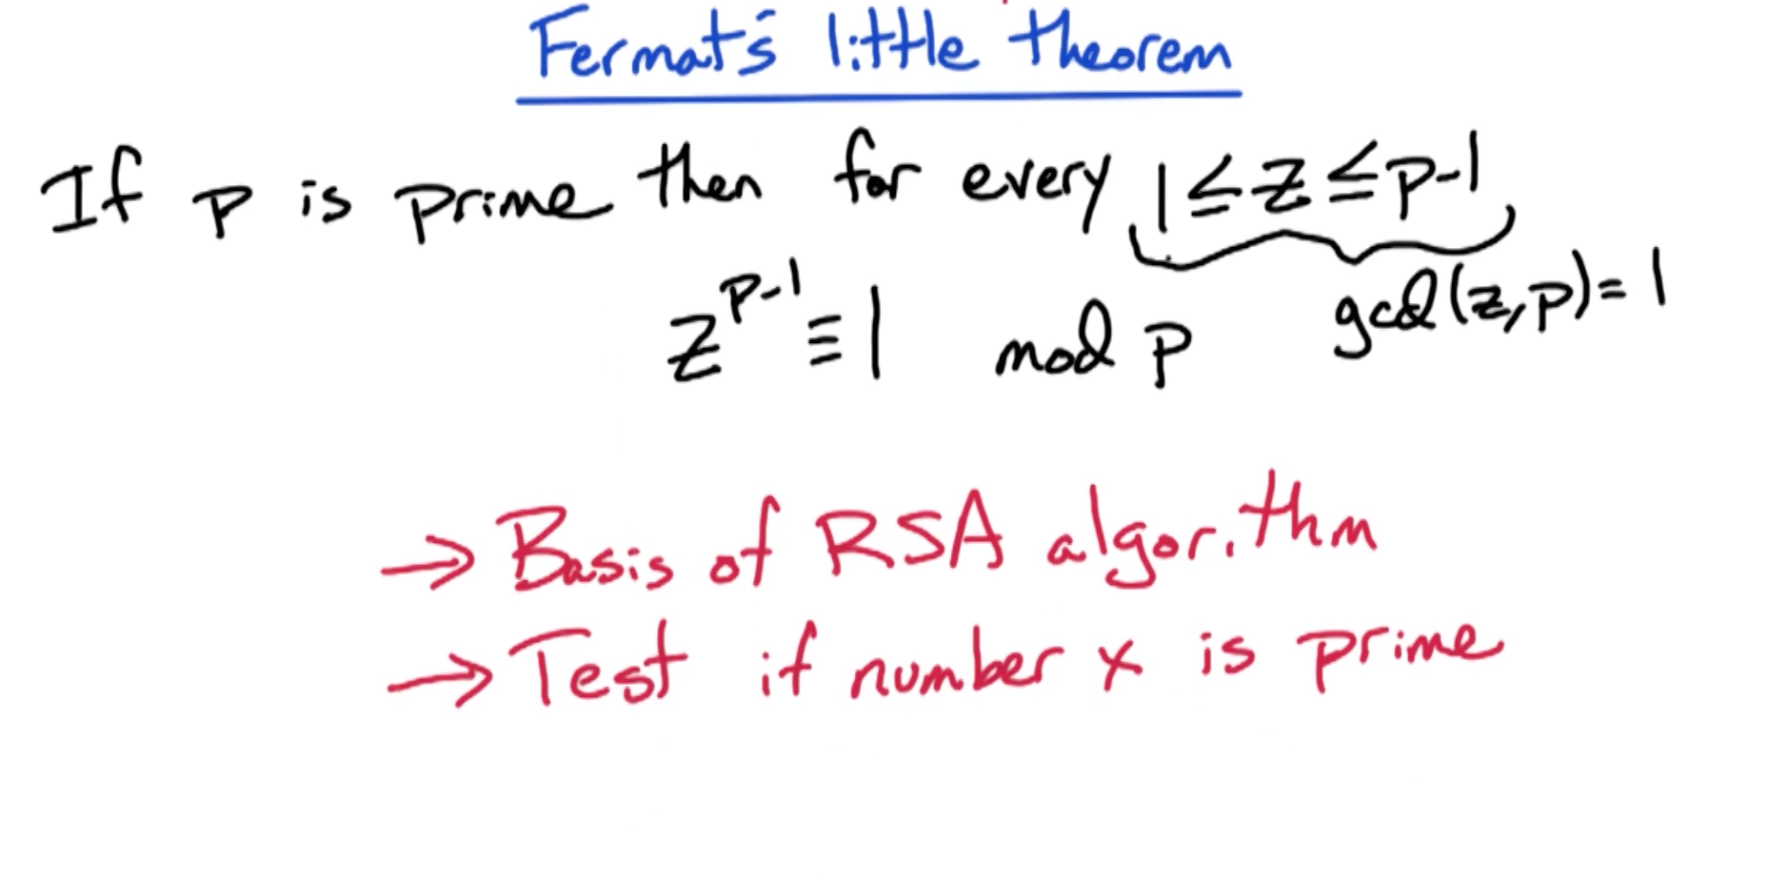 Fermat's little theorem
If p is prime then for every 1 ≤ z ≤ p-1
z^{p-1} ≡ 1 mod p
gcd(z,p) = 1
→ Basis of RSA algorithm
→ Test if number x is prime